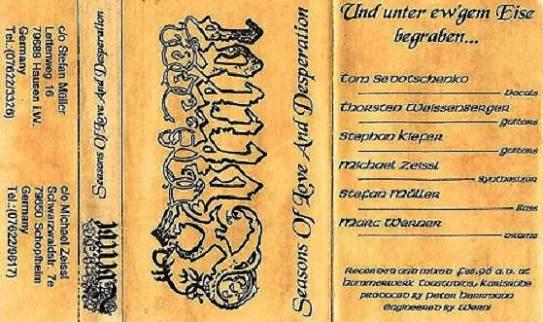 c/o Stefan Müller
Leitenweg 16
79688 Hausen i.W.
Germany
Tel.:(07622/3326)
c/o Michael Zeissl
Schwarzwaldstr. 7e
79650 Schopfheim
Germany
Tel.:(07622/9617)
Seasons Of Love And Desperation
Seasons Of Love And Desperation
Und unter ew'gem Eise
begraben...
Tom Sedotschenko
Vocals
Thorsten Weissenberger
Guitars
Stephan Kiefer
Guitars
Michael Zeissl
Synthesizer
Stefan Müller
Bass
Marc Werner
Drums
Recorded and mixed Feb.96 a.D. at
Hammerwerk Tonstudios, Karlsruhe
produced by Peter Herrmann
Engineered by Werni